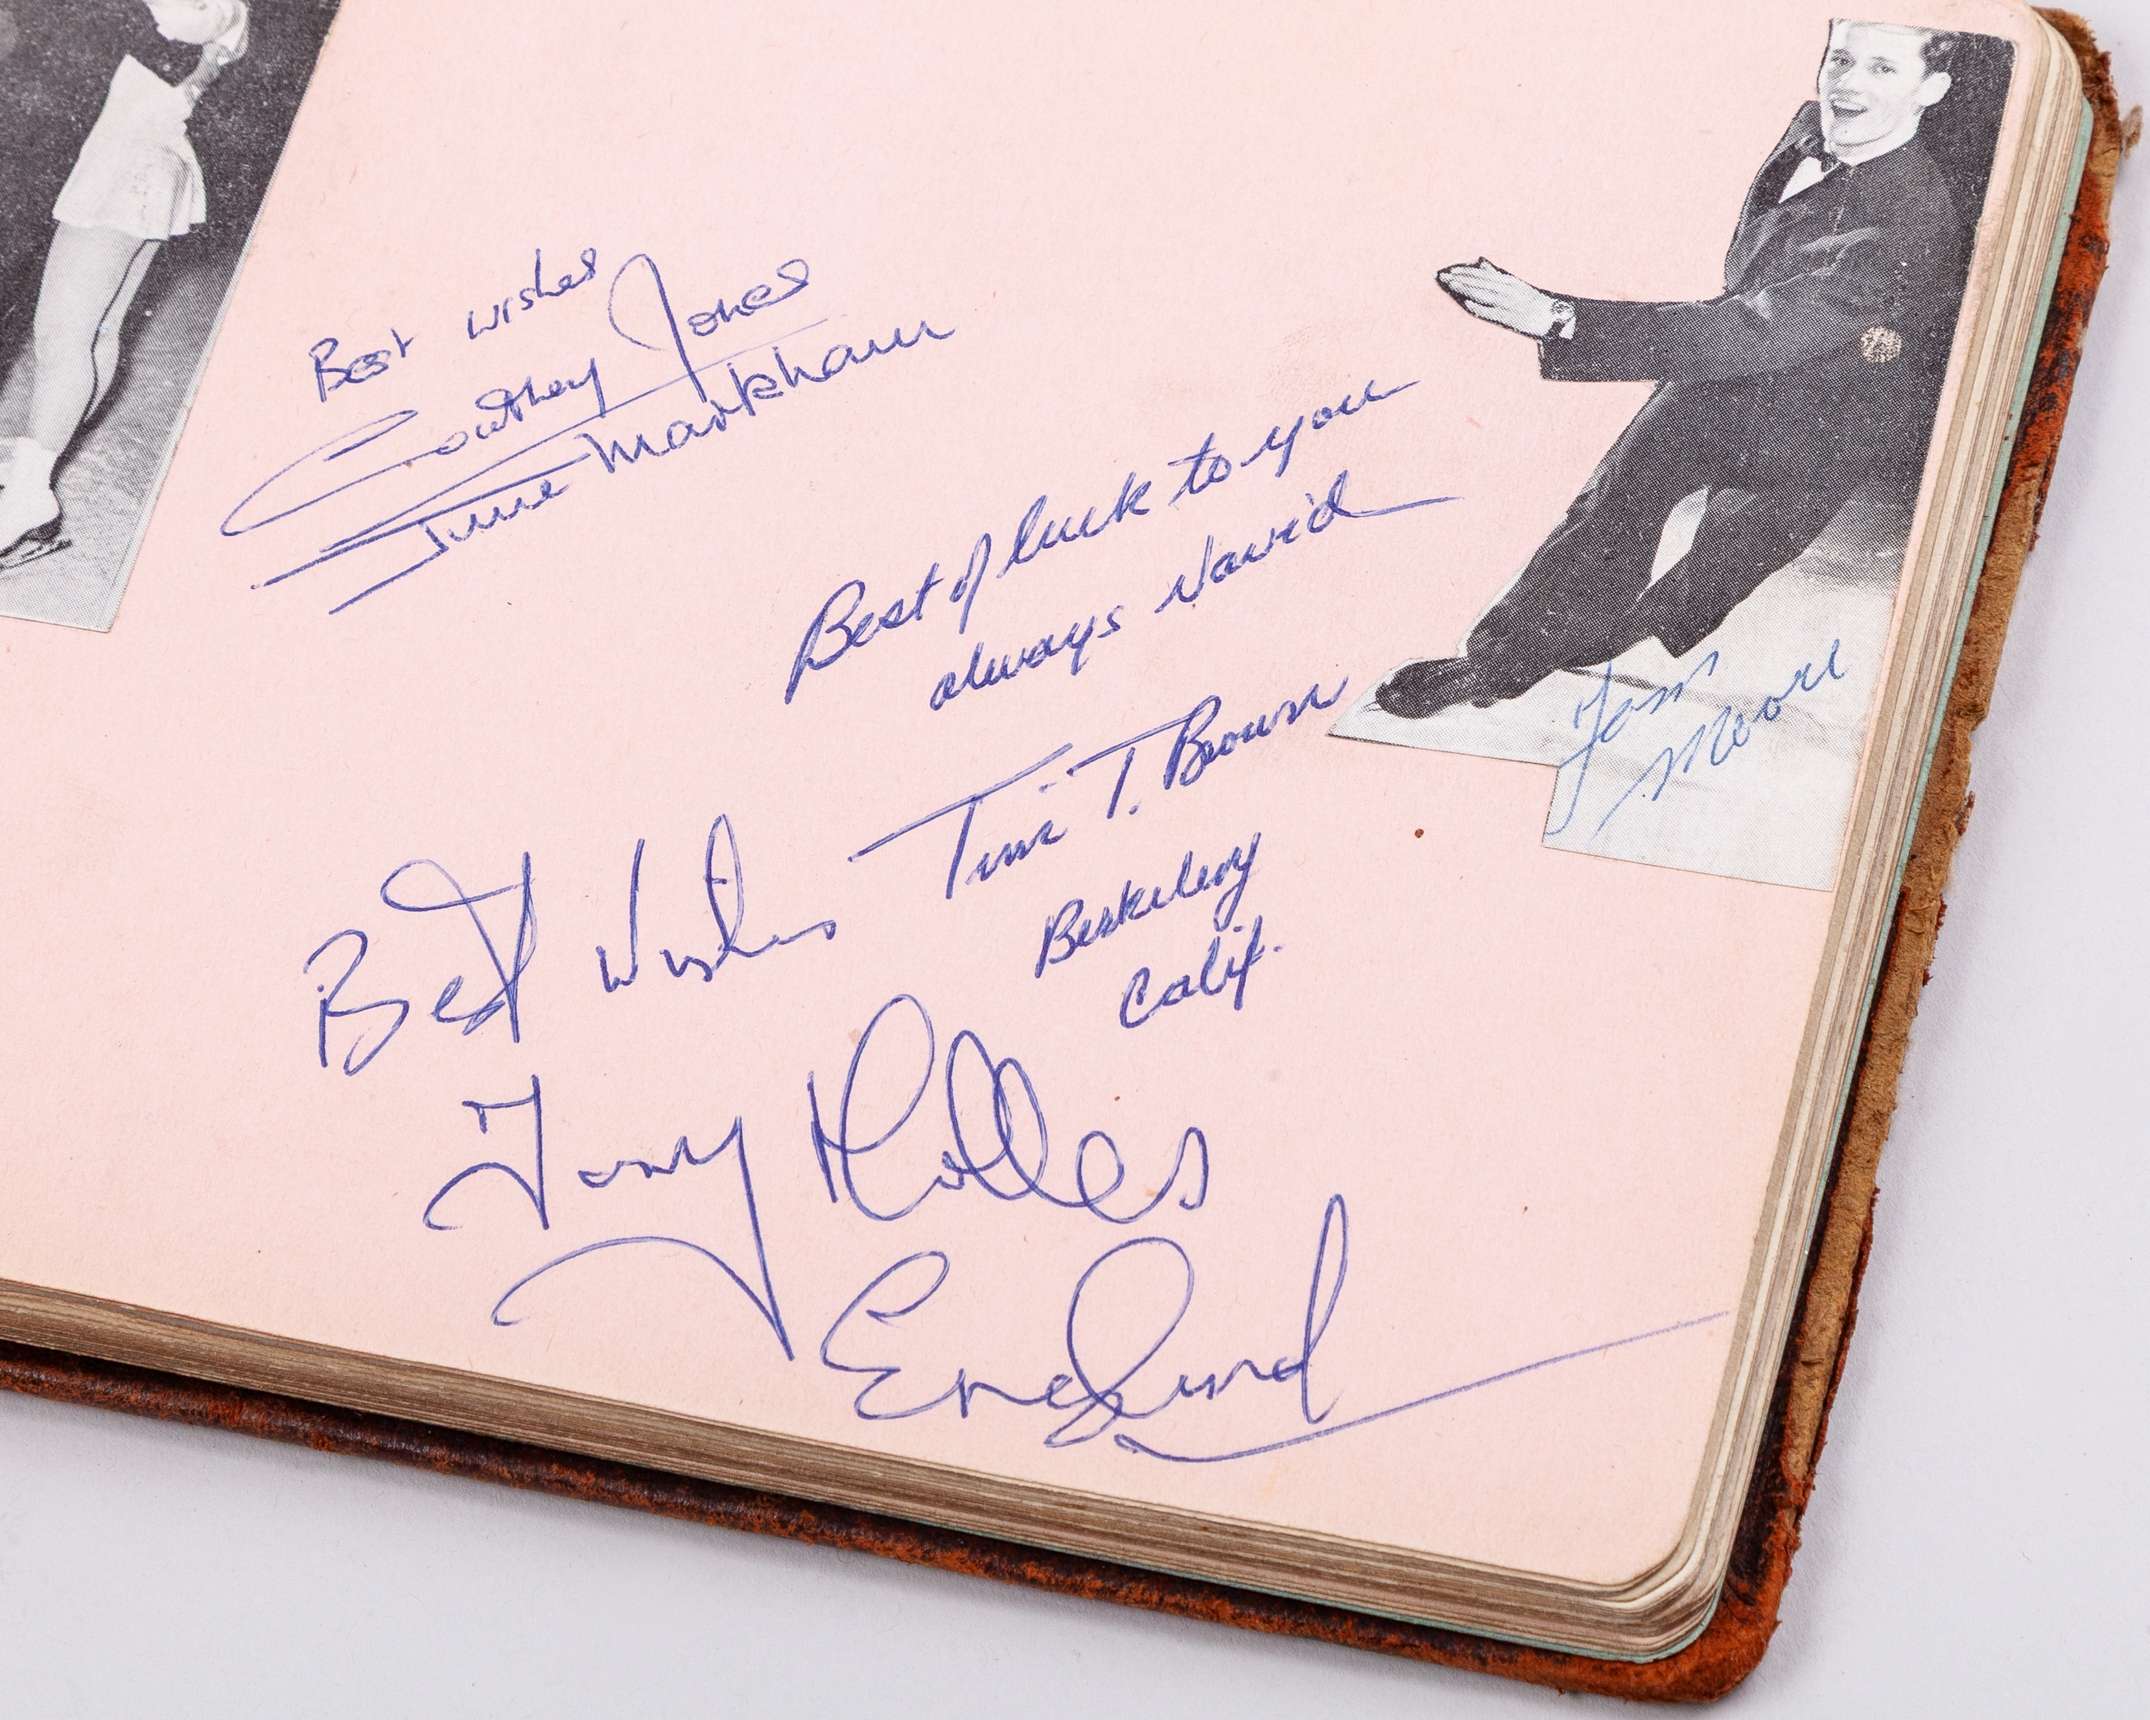 Best wishes
Courtney Jones
June Markham
Best of luck to you
always David
Tim T. Brown
Berkeley
Calif.
Best Wishes
Tony Holles
England
Tom
Moore